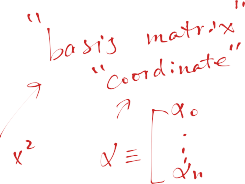 "basis matrix"
"coordinate"
x²
α ≡ [α₀
⋮
αₙ